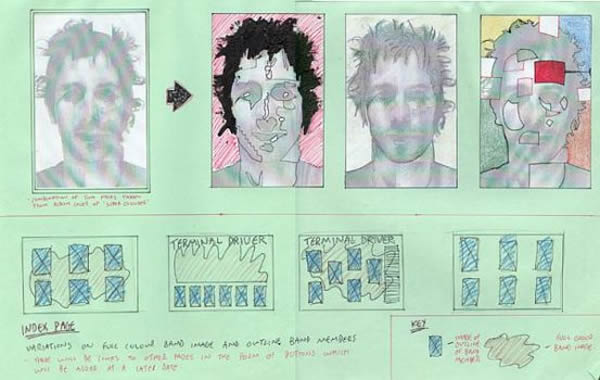 - COMBINATION OF TWO FACES TAKEN
FROM ALBUM COVER OF
TERMINAL DRIVER
TERMINAL DRIVER
INDEX PAGE
VARIATIONS ON FULL COLOUR BAND IMAGE AND OUTLINE BAND MEMBERS
- THERE WILL BE LINKS TO OTHER PAGES IN THE FORM OF BUTTONS WHICH
WILL BE ADDED AT A LATER DATE
KEY
- IMAGE OF
OUTLINE
OF BAND
MEMBERS
- FULL COLOUR
BAND IMAGE